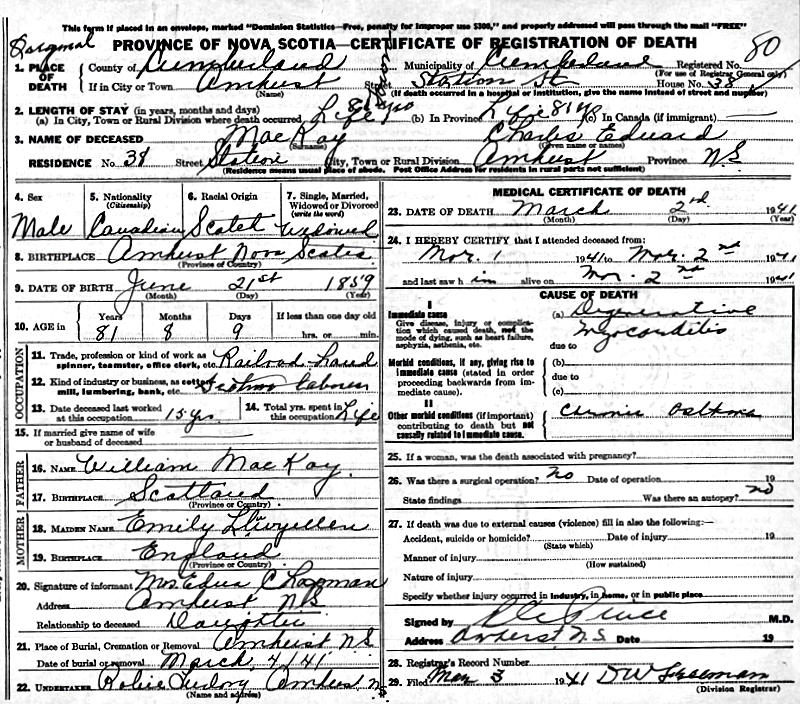 This form if placed in an envelope, marked "Dominion Statistics—Free, penalty for improper use $300," and properly addressed will pass through the mail "FREE"
PROVINCE OF NOVA SCOTIA—CERTIFICATE OF REGISTRATION OF DEATH
80
1. PLACE OF DEATH
County of Cumberland Municipality of Cumberland Registered No.
(For use of Registrar General only)
If in City or Town Amherst Street Station St House No. 38
(Name) (If death occurred in a hospital or institution, give the name instead of street and number)
2. LENGTH OF STAY (in years, months and days)
(a) In City, Town or Rural Division where death occurred, Life (b) In Province Life 81 (c) In Canada (if immigrant)
3. NAME OF DECEASED MacKay Charles Edward
(Surname) (Given name or names)
RESIDENCE No. 38 Street Station City, Town or Rural Division Amherst Province N.S.
(Residence means usual place of abode. Post Office Address for residents in rural parts not sufficient)
4. Sex 5. Nationality (Citizenship) 6. Racial Origin 7. Single, Married, Widowed or Divorced (write the word)
Male Canadian Scotch Widowed
8. BIRTHPLACE Amherst Nova Scotia
(Province or Country)
9. DATE OF BIRTH June 21st 1859
(Month) (Day) (Year)
10. AGE in Years Months Days If less than one day old
81 8 9 hrs. or min.
OCCUPATION
11. Trade, profession or kind of work as spinner, teamster, office clerk, etc. Railroad hand
12. Kind of industry or business, as cotton mill, lumbering, bank, etc. laborer
13. Date deceased last worked at this occupation 15 yrs. 14. Total yrs. spent in this occupation Life
15. If married give name of wife or husband of deceased
FATHER
16. NAME William MacKay.
17. BIRTHPLACE Scotland
(Province or Country)
MOTHER
18. MAIDEN NAME Emily
19. BIRTHPLACE England
(Province or Country)
20. Signature of informant Mrs. Edna Chapman
Address Amherst N.S
Relationship to deceased Daughter
21. Place of Burial, Cremation or Removal Amherst, N.S
Date of burial or removal March 4/41
22. UNDERTAKER Amherst N
(Name and address)
MEDICAL CERTIFICATE OF DEATH
23. DATE OF DEATH March 2nd 1941
(Month) (Day) (Year)
24. I HEREBY CERTIFY that I attended deceased from:
Mar. 1 1941 to Mar. 2nd 1941
and last saw h im alive on Mar. 2nd 1941
CAUSE OF DEATH
I
Immediate cause
Give disease, injury or complication which caused death, not the mode of dying, such as heart failure, asphyxia, asthenia, etc.
(a) Degenerative
Myocarditis
due to
Morbid conditions, if any, giving rise to immediate cause (stated in order proceeding backwards from immediate cause).
(b)
due to
(c)
II
Other morbid conditions (if important) contributing to death but not causally related to immediate cause.
Chronic Asthma
25. If a woman, was the death associated with pregnancy?
26. Was there a surgical operation? no Date of operation 19
State findings Was there an autopsy? no
27. If death was due to external causes (violence) fill in also the following:—
Accident, suicide or homicide? Date of injury 19
(State which)
Manner of injury
(How sustained)
Nature of injury
Specify whether injury occurred in industry, in home, or in public place
Signed by Prince M.D.
Address Amherst, N.S. Date 19
28. Registrar's Record Number
29. Filed Mar 3 1941 D W Freeman
(Division Registrar)